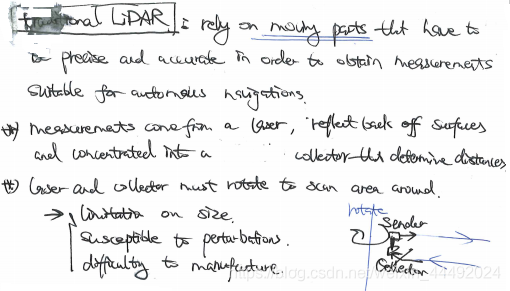 traditional LiDAR is rely on moving parts that have to
be precise and accurate in order to obtain measurements
suitable for automous navigations.
measurements come from a laser, reflect back off surfaces
and concentrated into a collector this determine distances
laser and collector must rotate to scan area around.
→ limitation on size.
susceptible to perturbations.
difficulty to manufacture
rotate
Sender
Collector
https://blog.csdn.net/weixin_44492024